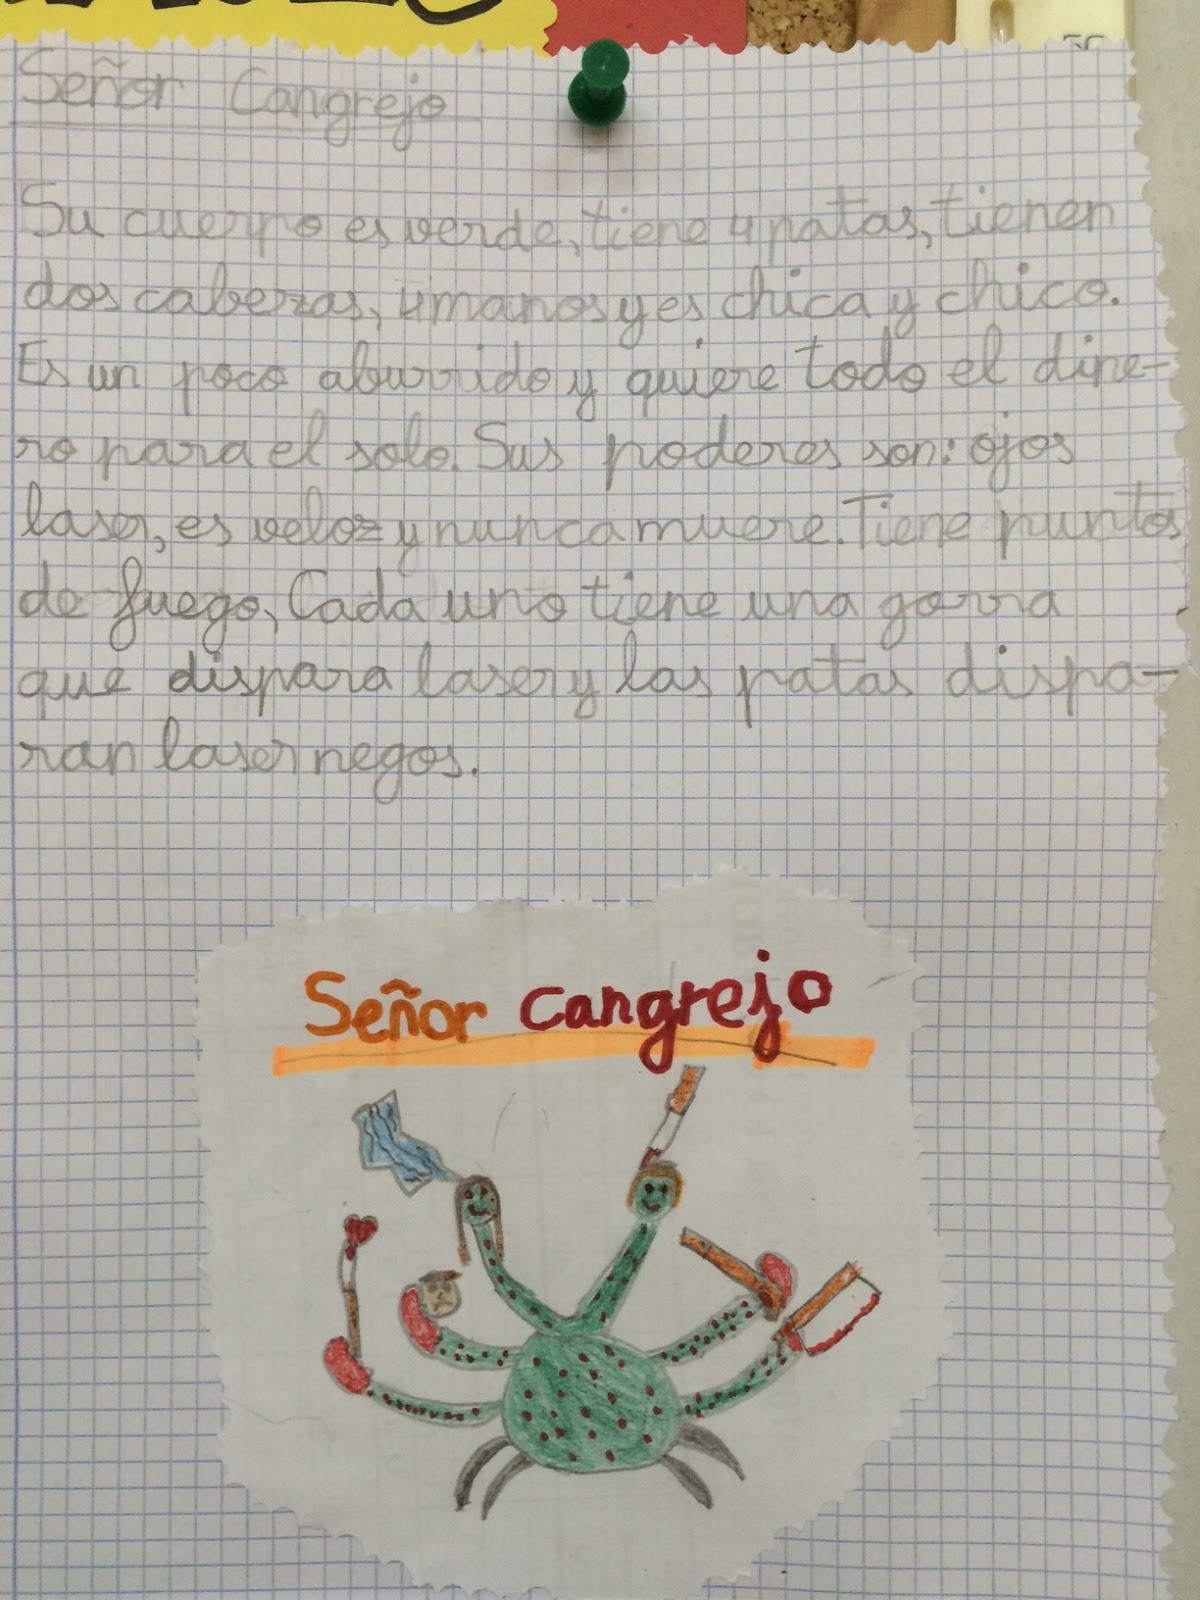 Señor Cangrejo
Su cuerpo es verde, tiene 4 patas, tienen
dos cabezas, 4 manos y es chica y chico.
Es un poco aburrido y quiere todo el dine-
ro para el solo. Sus poderes son: ojos
laser, es veloz y nunca muere. Tiene puntos
de fuego, Cada uno tiene una gorra
que dispara laser y las patas dispa-
ran laser negos.
Señor cangrejo